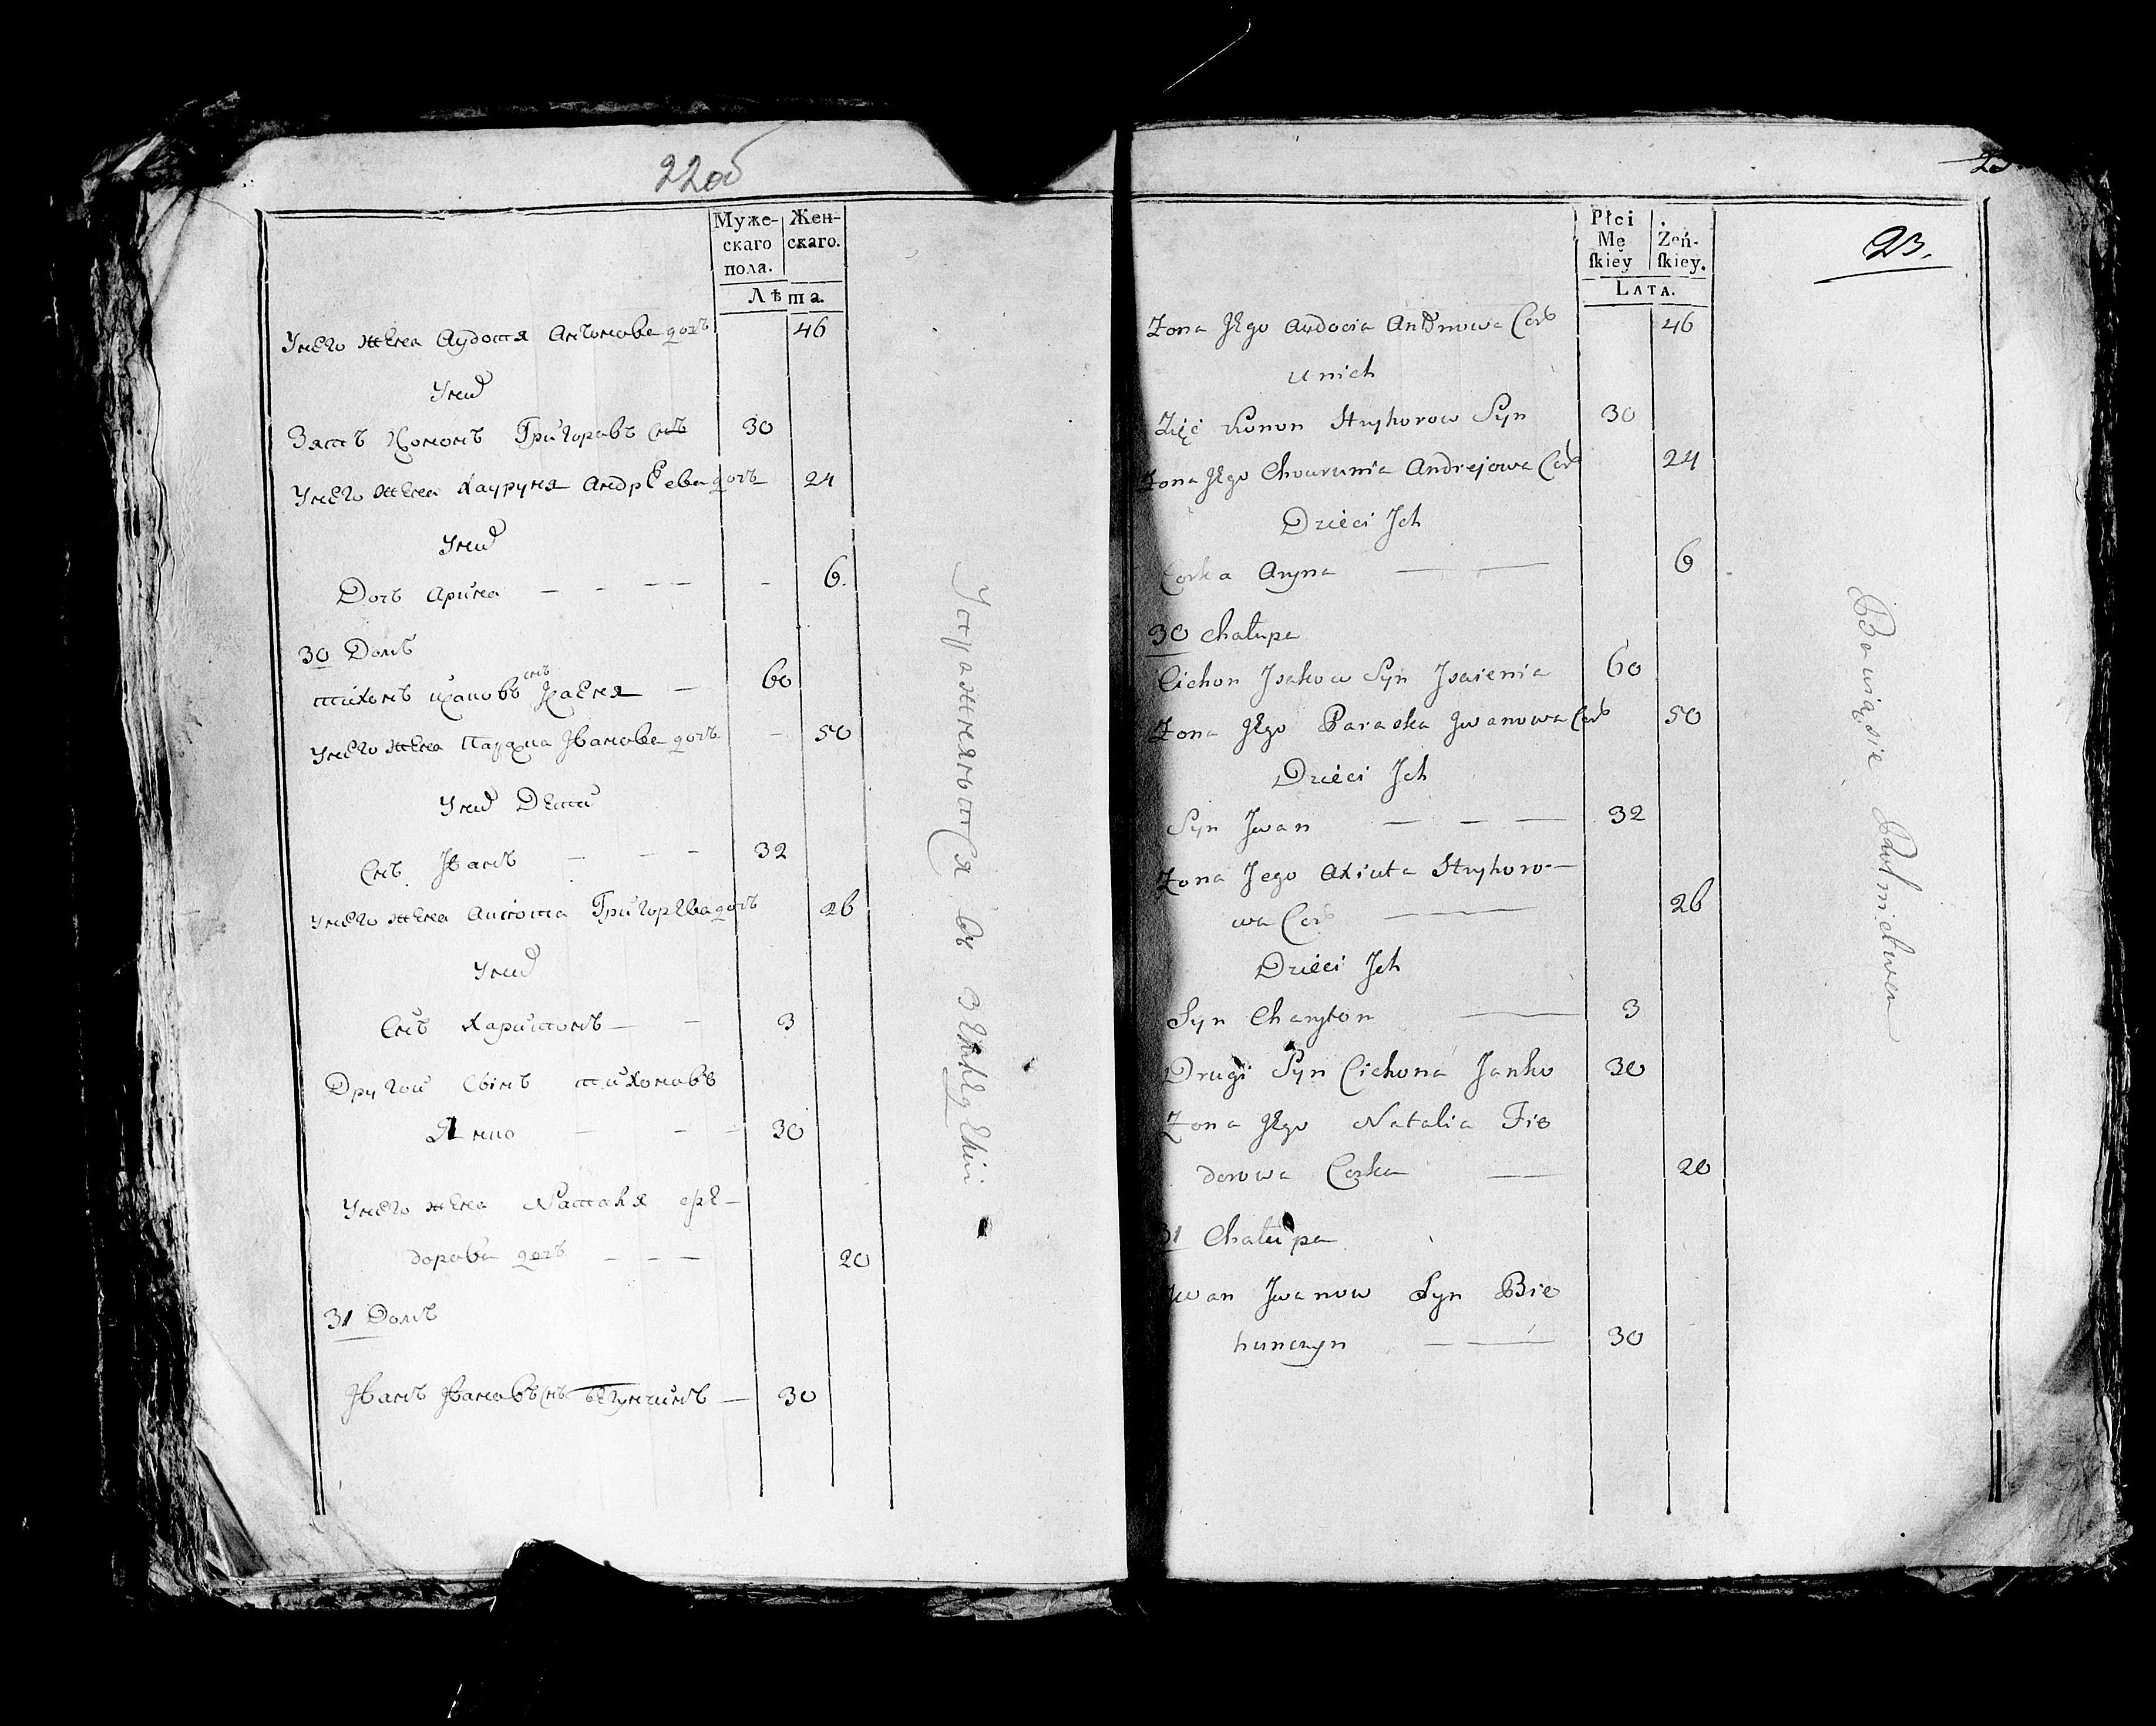 22об
Муже- Жен-
скаго скаго.
пола.
Лѣта.
Унего жена Аудотя Антонова дочъ 46
Уних
Зятъ Кононъ Григоровъ снъ 30
Унего жена Хауруня Андреева дочъ 24
Уних
Дочъ Арина — - — — - 6.
30 Домъ
тихонъ исаковъ снъ Исаеня — 60
Унего жена Параска Иванова дочъ - 50
Уних Дети
Снъ Иванъ — — — 32
Унего жена Аксюта Григорева дочъ 26
Уних
Снъ Харитонъ — — 3
Другои Сынъ тихоновъ
Янко — — — 30
Унего жена Наталя фе-
дорова дочъ — — — 20
31 Домъ
Иванъ Ивановъ снъ бегунчинъ — 30
23
23.
Płci
Mę Zeń-
ſkiey ſkiey.
LATA.
Zona Jego Audocia Antonowa Cor 46
U nich
Zięć Konon Hryhorow Syn 30
Zona Jego Chourunia Andrejowa Cor 24
Dzieci Jch
Corka Aryna — — 6
30 Chałupa
Cichon Jsakow Syn Jsaienia 60
Zona Jego Paraska Jwanowa Cor 50
Dzieci Jch
Syn Jwan — — — 32
Zona Jego Axiuta Hryhoro-
wa Cor — 26
Dzieci Jch
Syn Charyton — 3
Drugi Syn Cichona Janko 30
Zona Jego Natalia Fie
dorowa Corka — 20
31 Chałupa
Jwan Jwanow Syn Bie
hunczyn — — 30